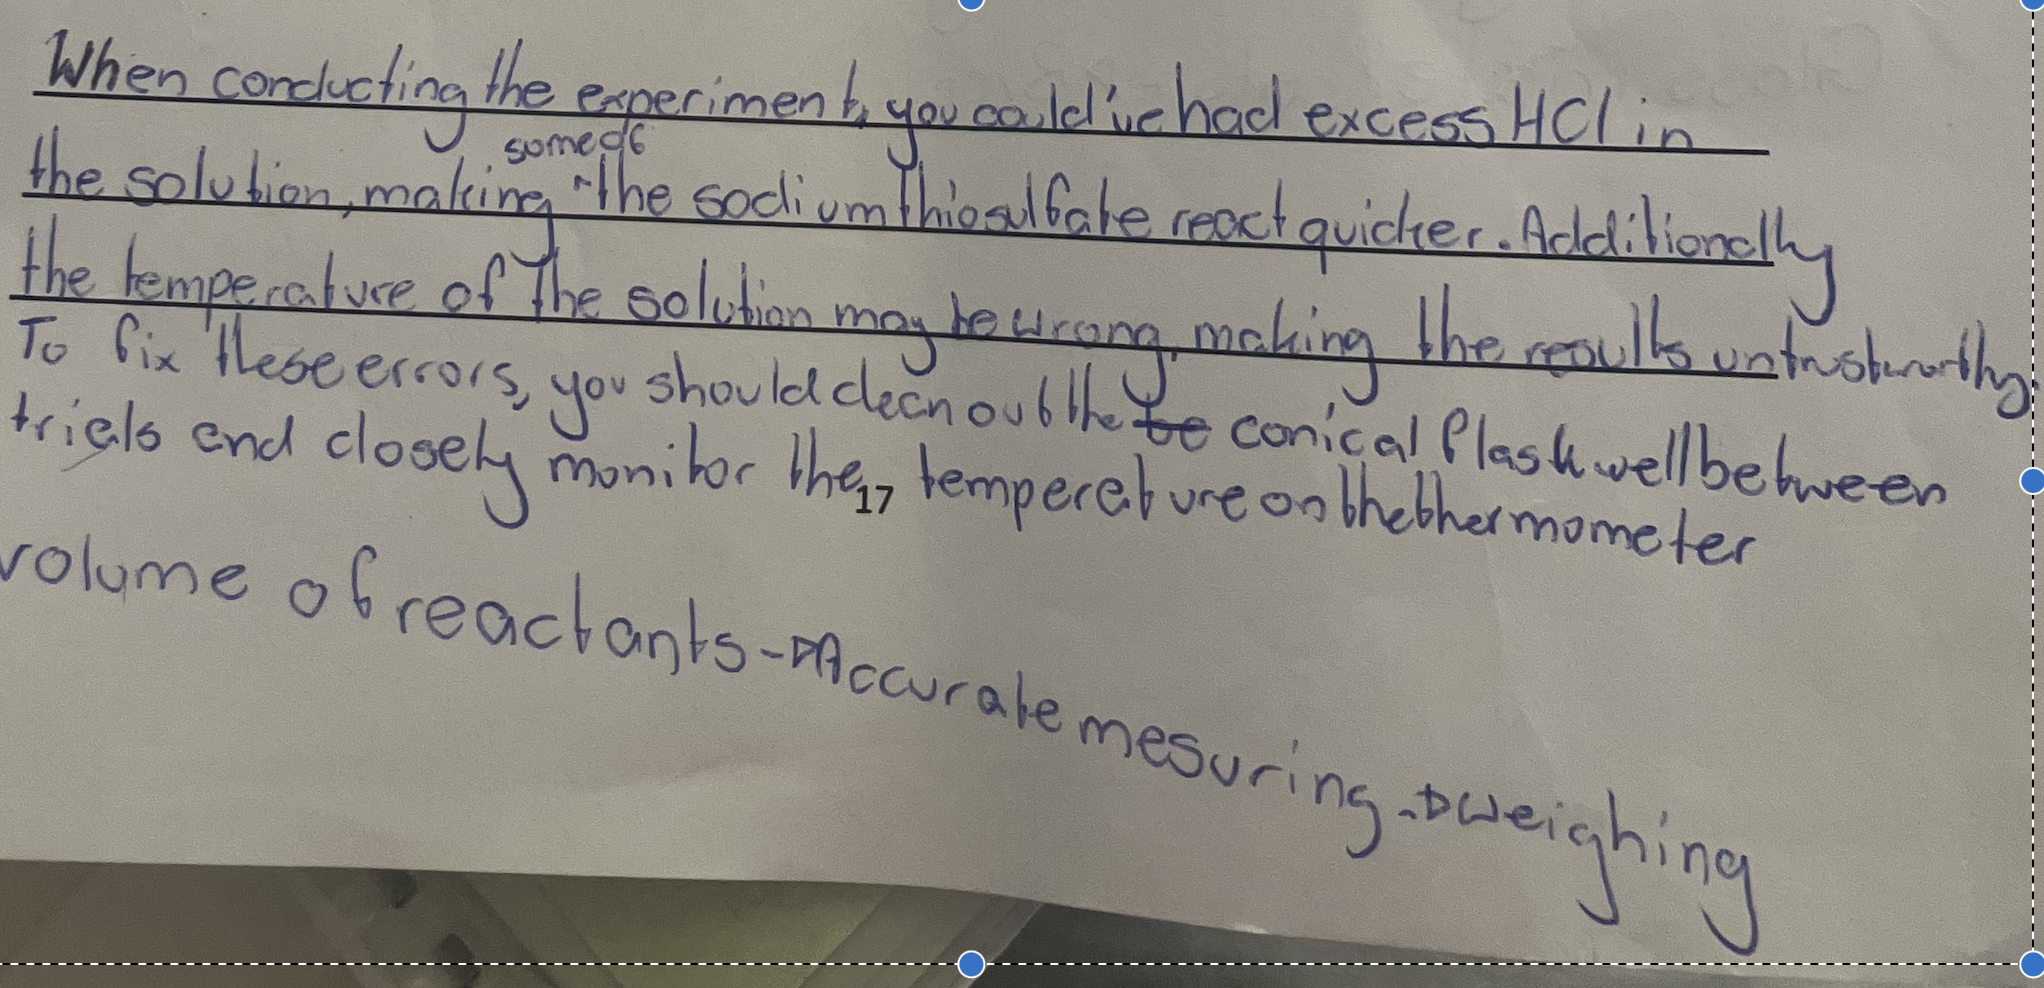 When conducting the experiment, you could've had excess HCl in
some of
the solution, making the sodium thiosulfate react quicker. Additionally
the temperature of the solution may be wrong, making the results untrustworthy
To fix these errors, you should clean out the te conical flask well between
trials and closely monitor the temperature on the thermometer
17
volume of reactants → Accurate mesuring → weighing